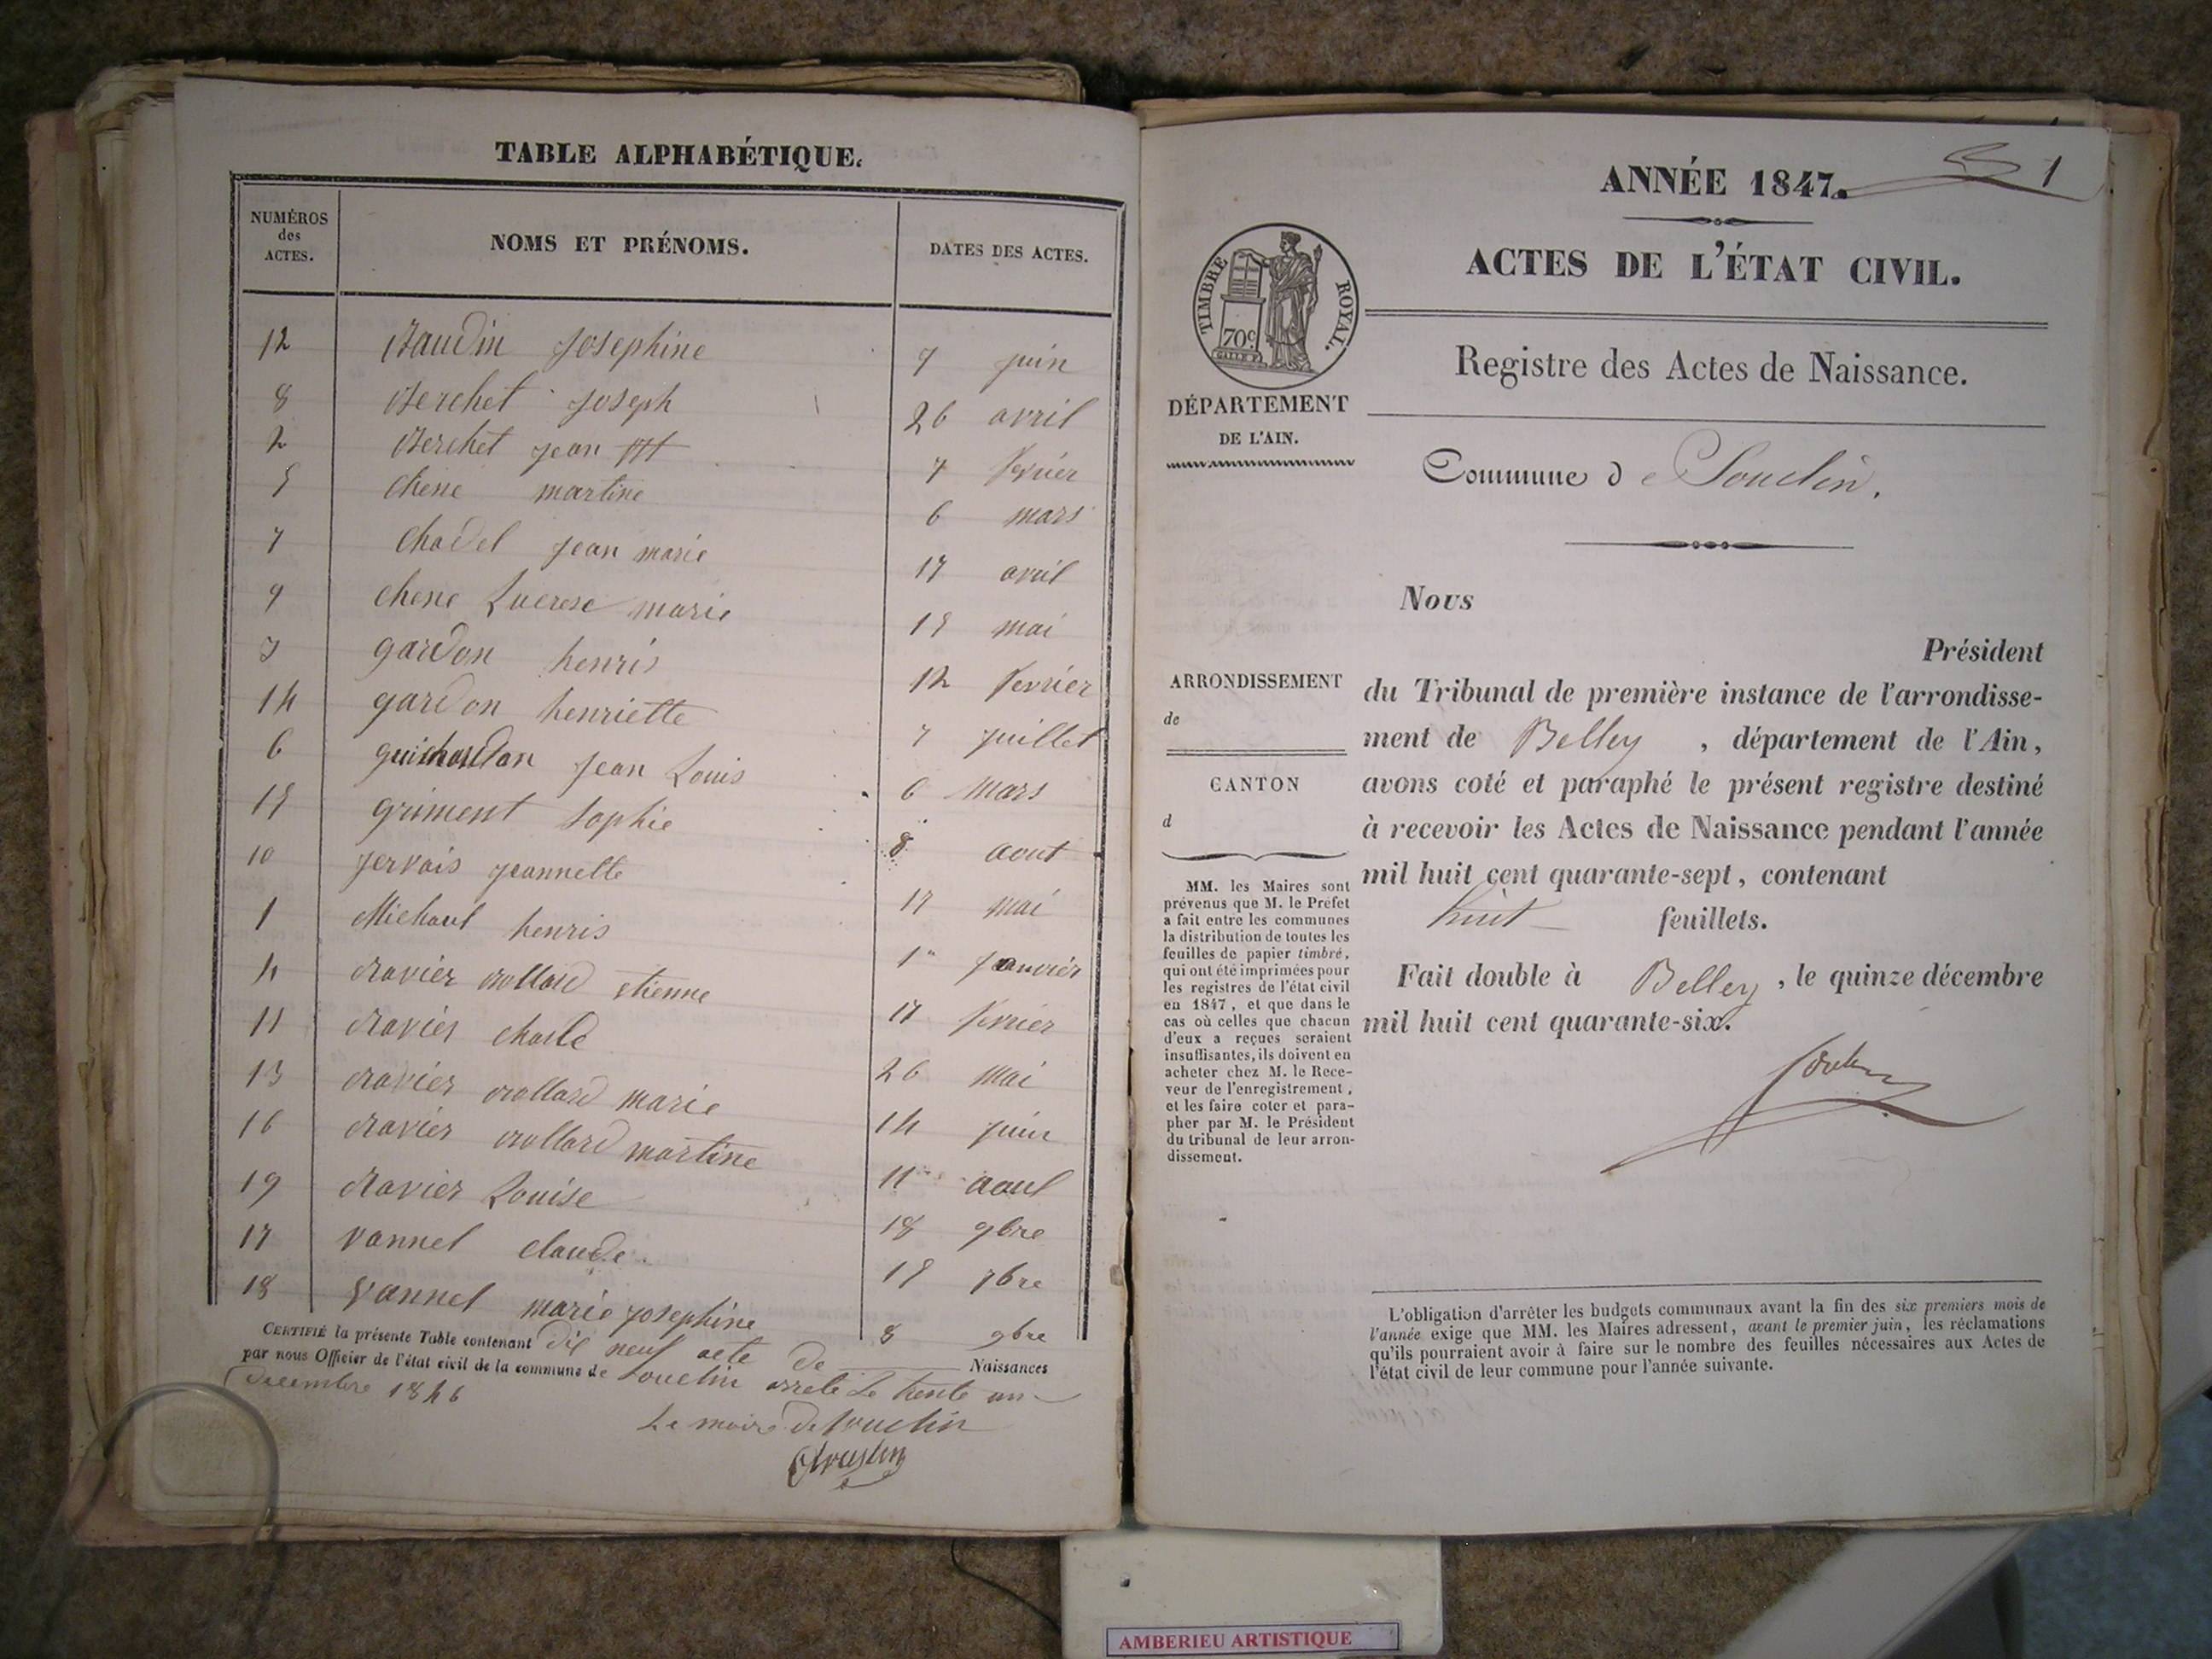 TABLE ALPHABÉTIQUE.
NUMÉROS des ACTES. NOMS ET PRÉNOMS. DATES DES ACTES.
12 Baudin Josephine 7 juin
8 Berchet Joseph 26 avril
2 Berchet jean 7 fevrier
5 chene martine 6 mars
7 Chadel jean marie 17 avril
9 chene Lucrese marie 15 mai
3 gardon henris 12 fevrier
14 gardon henriette 7 juillet
6 guichardon jean Louis 6 mars
15 griment sophie 8 aout
10 jervais jeannette 17 mai
1 Michaul henris 1er janvier
4 Ravier rollard etienne 17 fevrier
11 Ravier charle 26 mai
13 Ravier rollard marie 14 juin
16 Ravier rollard martine 11 aout
19 Ravier Louise 18 9bre
17 vannel claude 15 7bre
18 vannel marie josephine 8 9bre
CERTIFIÉ la présente Table contenant dix neuf acte de Naissances
par nous Officier de l'état civil de la commune de Souclin arrete Le trente un
decembre 1846
Le maire de souclin
ANNÉE 1847. 1
ACTES DE L'ÉTAT CIVIL.
TIMBRE ROYAL.
70c
Registre des Actes de Naissance.
DÉPARTEMENT
DE L'AIN.
Commune de Souclin.
Nous
Président
ARRONDISSEMENT
de
CANTON
d
du Tribunal de première instance de l'arrondisse-
ment de Belley, département de l'Ain,
avons coté et paraphé le présent registre destiné
à recevoir les Actes de Naissance pendant l'année
mil huit cent quarante-sept, contenant
huit feuillets.
Fait double à Belley, le quinze décembre
mil huit cent quarante-six.
MM. les Maires sont
prévenus que M. le Préfet
a fait entre les communes
la distribution de toutes les
feuilles de papier timbré,
qui ont été imprimées pour
les registres de l'état civil
en 1847, et que dans le
cas où celles que chacun
d'eux a reçues seraient
insuffisantes, ils doivent en
acheter chez M. le Rece-
veur de l'enregistrement,
et les faire coter et para-
pher par M. le Président
du tribunal de leur arron-
dissement.
L'obligation d'arrêter les budgets communaux avant la fin des six premiers mois de
l'année exige que MM. les Maires adressent, avant le premier juin, les réclamations
qu'ils pourraient avoir à faire sur le nombre des feuilles nécessaires aux Actes de
l'état civil de leur commune pour l'année suivante.
AMBERIEU ARTISTIQUE